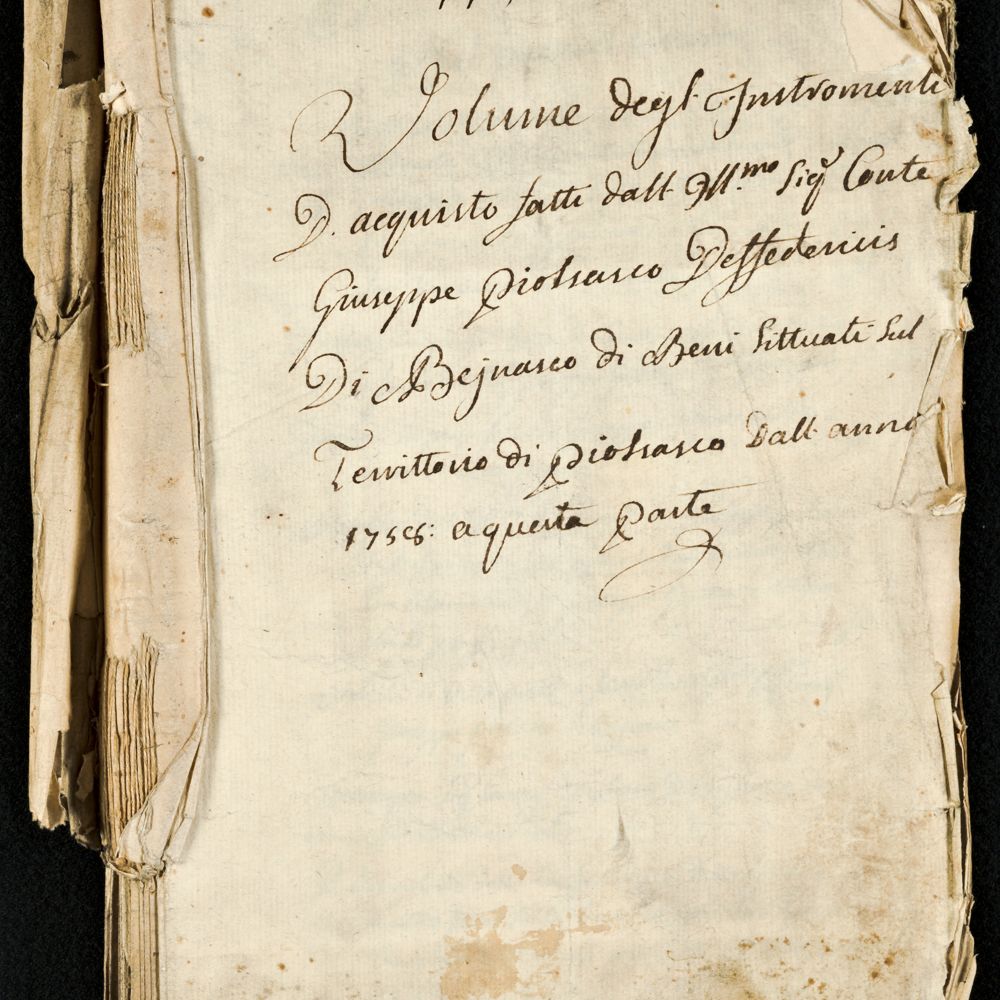 Volume degl' Instromenti
D'acquisto fatti dall' Ill.mo Sig.r Conte
Giuseppe Piossasco Deffedericis
Di Bejnasco di Beni Sittuati Sul
Territtorio di Piossasco Dall' anno
1758: a questa Parte